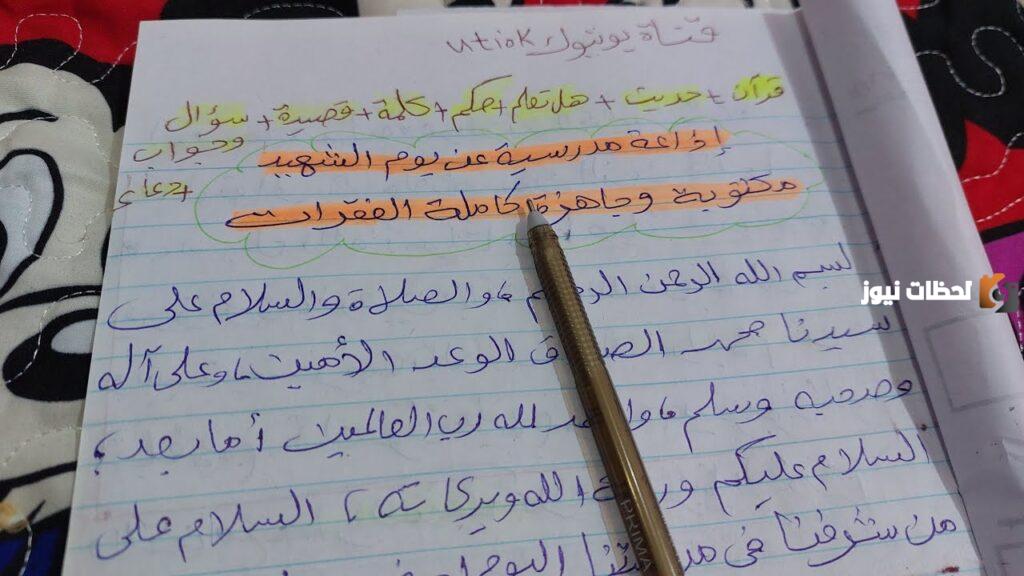 قناة يوتيوك utiok
قرآن + حديث + هل تعلم + حكم + كلمة + قصيدة + سؤال
وجواب
+ دعاء
إذاعة مدرسية عن يوم الشهيد
مكتوبة وجاهزة كاملة الفقرات
بسم الله الرحمن الرحيم، والصلاة والسلام على
سيدنا محمد الصادق الوعد الأمين، وعلى آله
وصحبه وسلم، والحمد لله رب العالمين أما بعد،
السلام عليكم ورحمة الله وبركاته، السلام على
من شرفنا في اليوم
لحظات نيوز
PRIMA